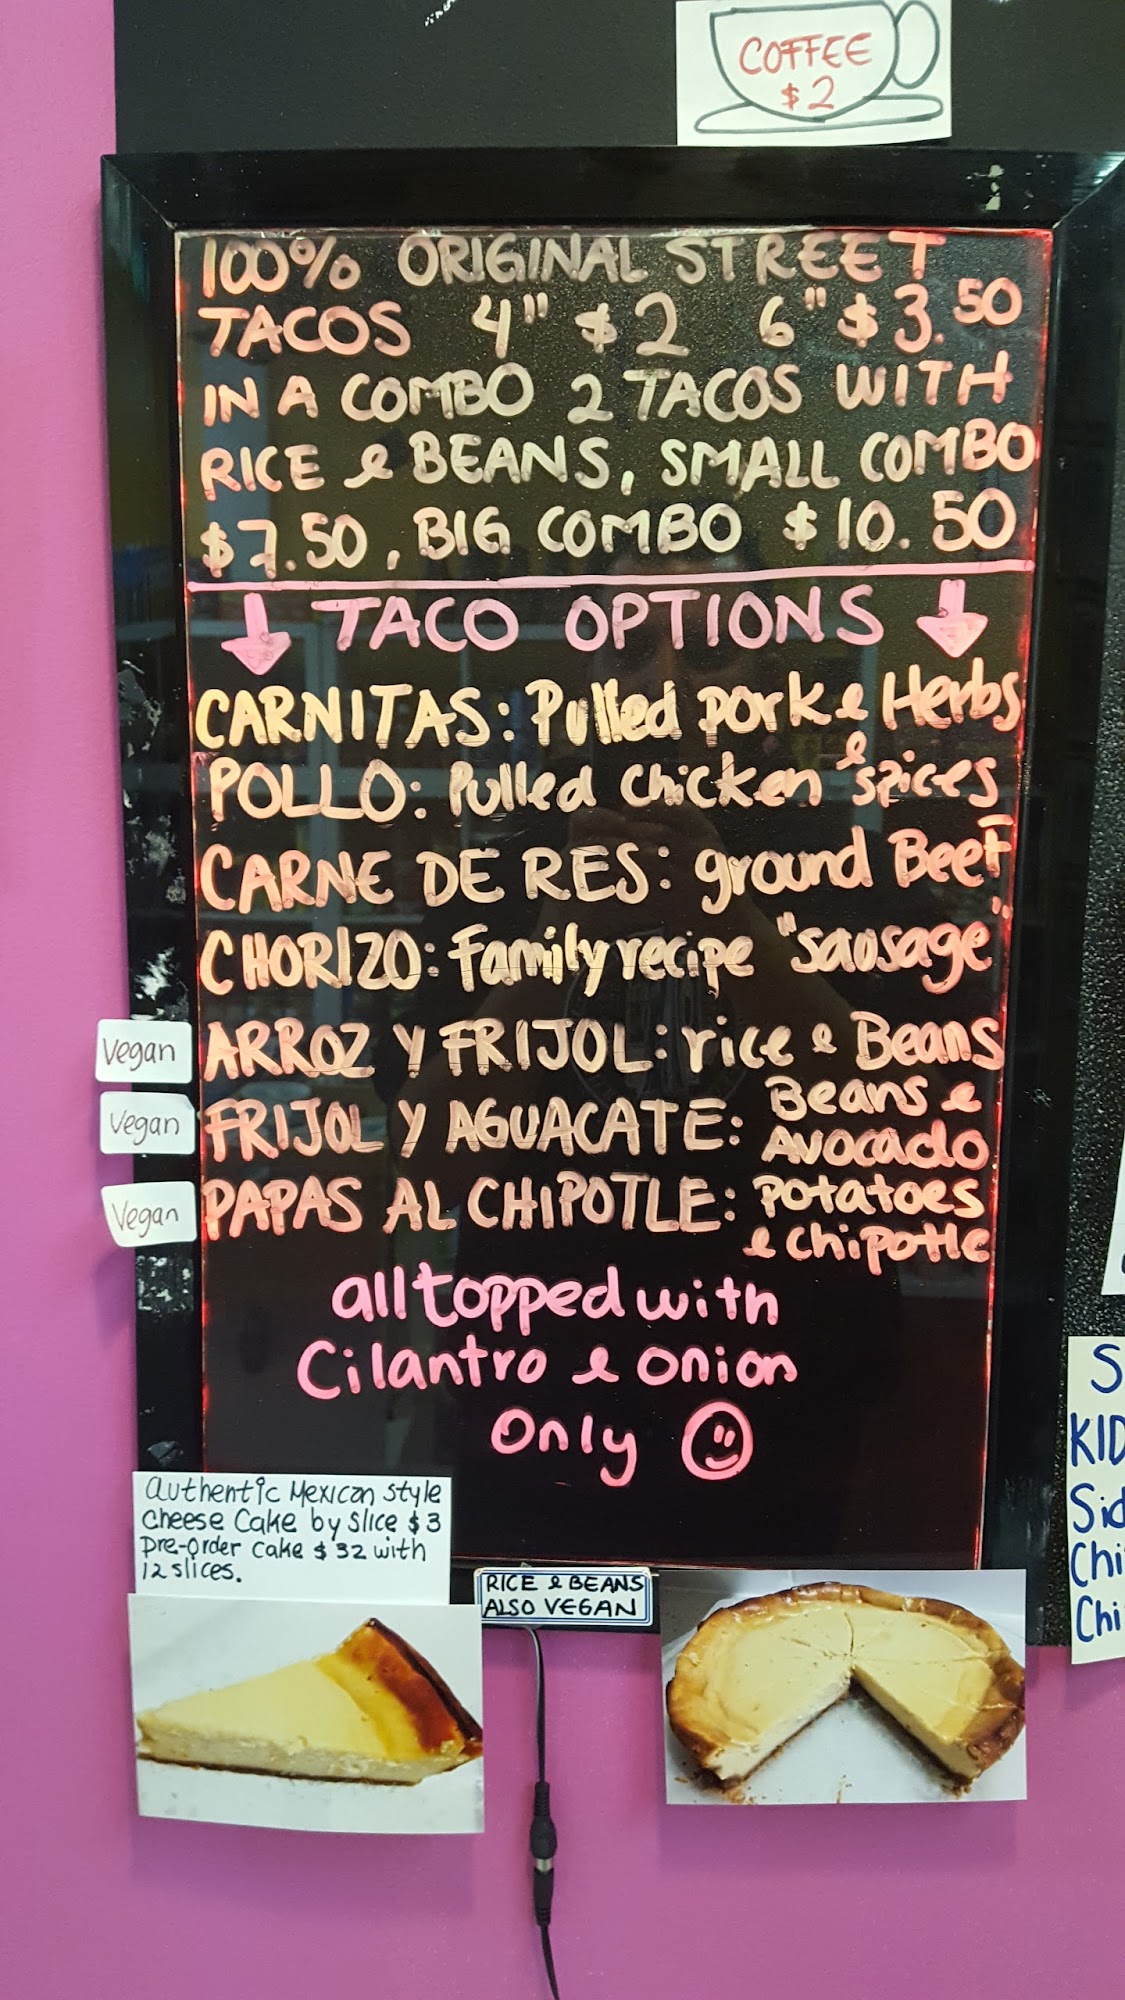 COFFEE
$2
100% ORIGINAL STREET
TACOS 4" $2 6" $3.50
IN A COMBO 2 TACOS WITH
RICE & BEANS, SMALL COMBO
$7.50, BIG COMBO $10.50
TACO OPTIONS
CARNITAS: Pulled pork & Herbs
POLLO: Pulled chicken & spices
CARNE DE RES: ground Beef
CHORIZO: Family recipe "sausage"
Vegan ARROZ Y FRIJOL: rice & Beans
Vegan FRIJOL Y AGUACATE: Beans &
Avocado
Vegan PAPAS AL CHIPOTLE: potatoes
& chipotle
all topped with
Cilantro & onion
only
Authentic Mexican style
Cheese Cake by slice $3
pre-order cake $32 with
12 slices.
RICE & BEANS
ALSO VEGAN
S
KID
Sid
Chi
Chi